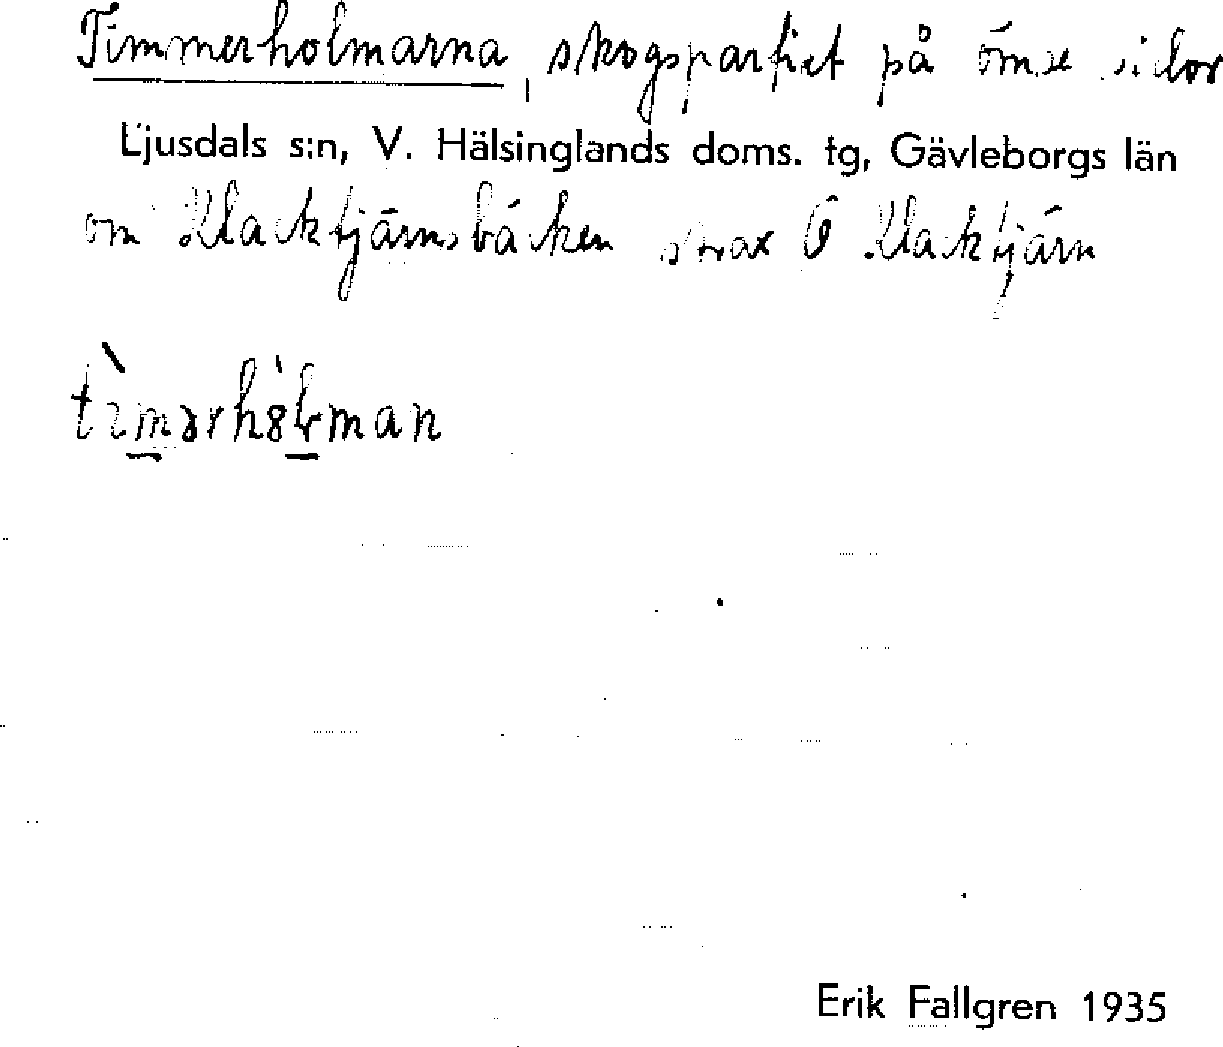 Timmerholmarna, skogspartiet på ömse sidor
Ljusdals s:n, V. Hälsinglands doms. tg, Gävleborgs län
om Klacktjärnsbäcken strax Ö Klacktjärn
Erik Fallgren 1935